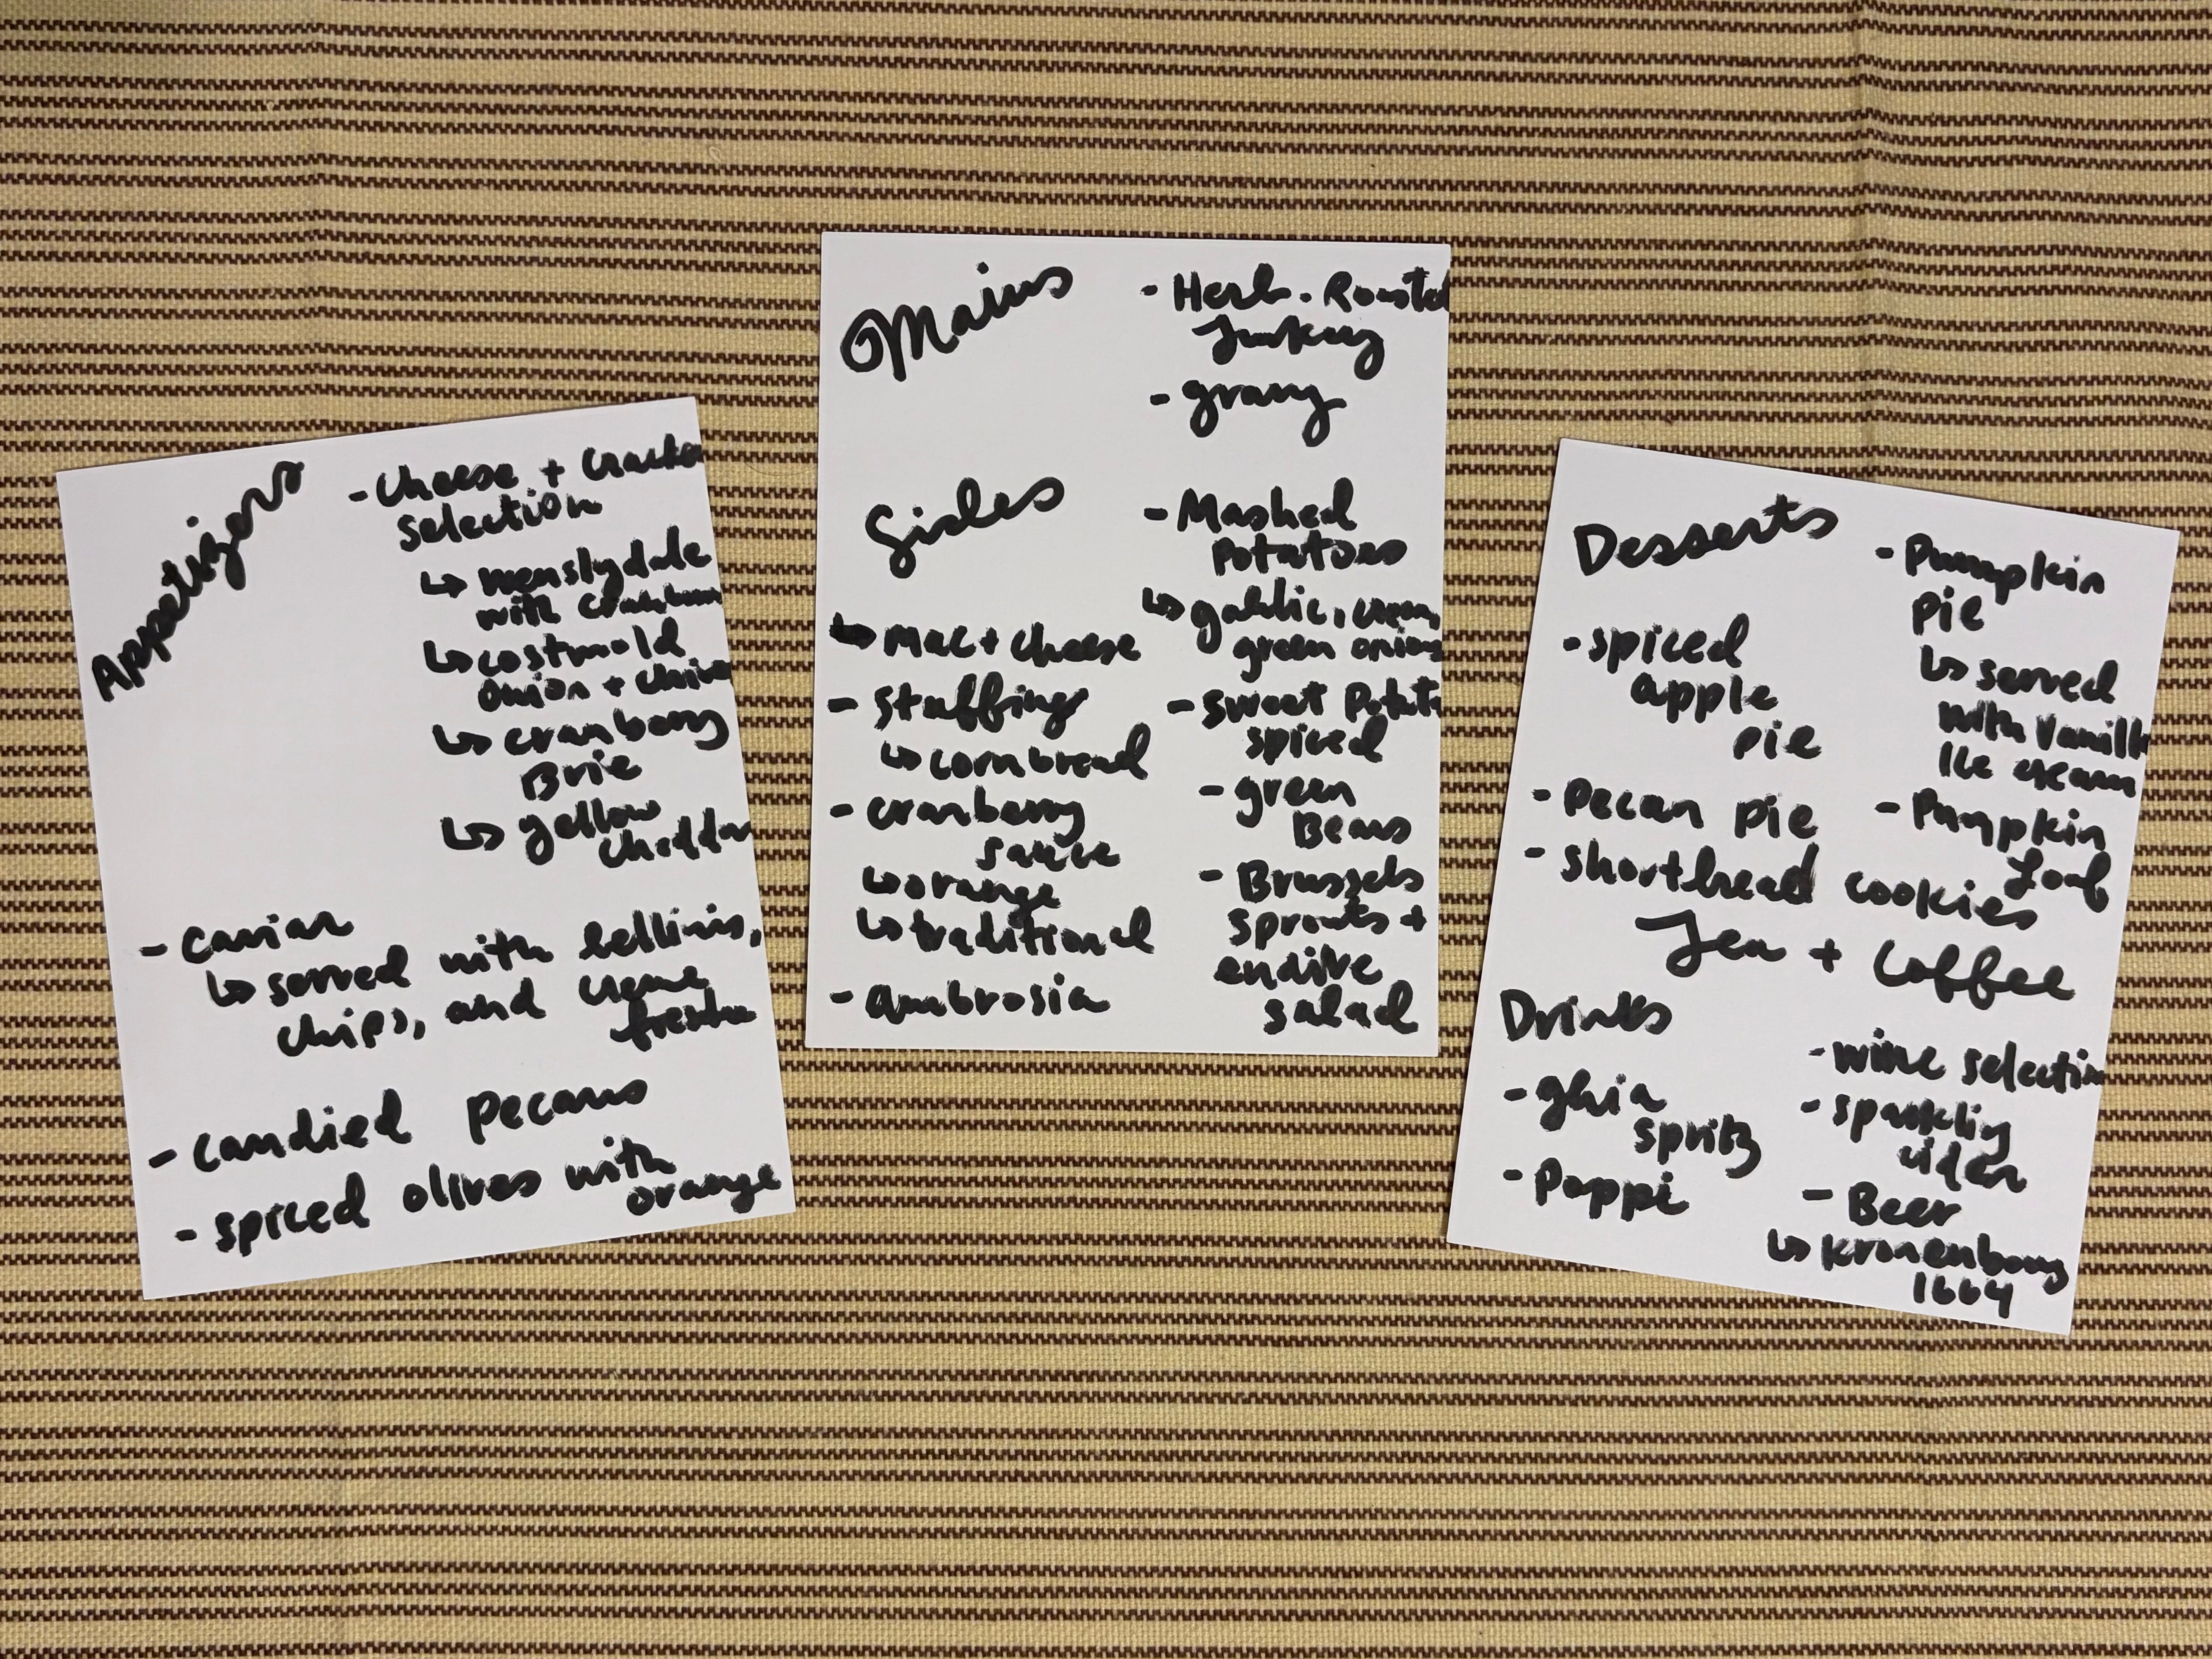 Appetizers
- Cheese + Cracker
selection
↳ wenslydale
with cranberry
↳ costwold
onion + chive
↳ cranberry
Brie
↳ yellow
cheddar
- caviar
↳ served with bellinis,
chips, and creme
freshe
- candied pecans
- spiced olives with
orange
Mains
- Herb-Roasted
Turkey
- gravy
Sides
- Mashed
Potatoes
↳ garlic, cream,
green onions
- sweet Potato
spiced
- green
Beans
- Brussels
sprouts +
endive
salad
↳ Mac + cheese
- Stuffing
↳ cornbread
- cranberry
sauce
↳ orange
↳ traditional
- ambrosia
Desserts
- Pumpkin
pie
↳ served
with vanilla
Ice cream
- Pumpkin
Loaf
- spiced
apple
pie
- Pecan pie
- shortbread cookies
Tea + Coffee
Drinks
- wine selection
- sparkling
cider
- Beer
↳ kronenbourg
1664
- ghia
spritz
- Poppi